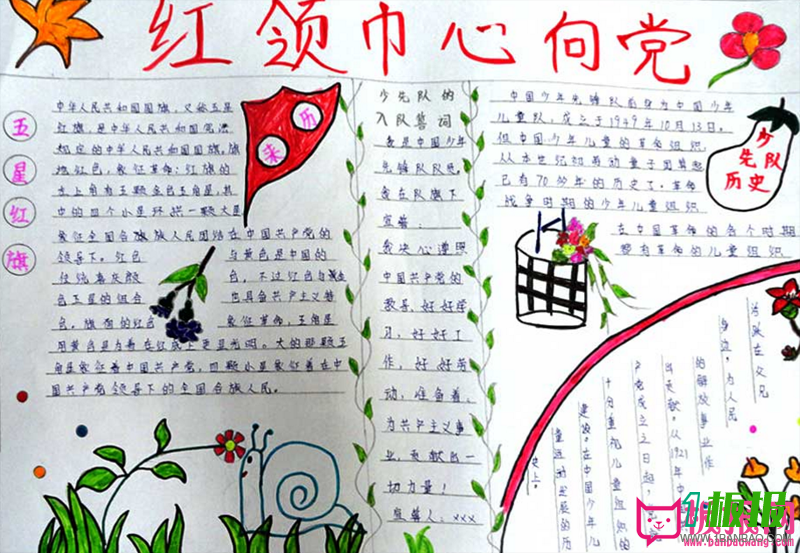 红领巾心向党
五星红旗
来历
中华人民共和国国旗，又称五星
红旗，是中华人民共和国宪法
规定的中华人民共和国国旗，旗
地红色，象征革命；红旗的
左上角有五颗金色五角星，其
中的四个小星环拱一颗大星
象征全国各族人民团结在中国共产党的
领导下。红色
与黄色是中国的
传统喜庆颜
色，不过红色与黄金
色五星的组合
也具备共产主义特
色。旗面的红色
象征革命，五角星
用黄色是为着在红底上更显光明。大的那颗五
角星象征着中国共产党，四颗小星象征着在中
国共产党领导下的全国各族人民。
少先队的
入队誓词
我是中国少年
先锋队队员。
我在队旗下
宣誓：
我决心遵照
中国共产党的
教导，好好学
习，好好工
作，好好劳
动，准备着，
为共产主义事
业，贡献出一
切力量！
宣誓人：xxx
少先队历史
中国少年先锋队前身为中国少年
儿童队，成立于1949年10月13日。
但中国少年儿童的革命组织
从本世纪初
已有70多年的历史了。革命
战争时期的少年儿童组织
在中国革命的各个时期
都有革命的儿童组织
为人民
的解放事业作
出贡献。从1921年中
产党成立之日起，
十分重视儿童组织的
建设。在中国少年儿
史上。
板报网
1RANBAO.COM
www.banbaowang.com